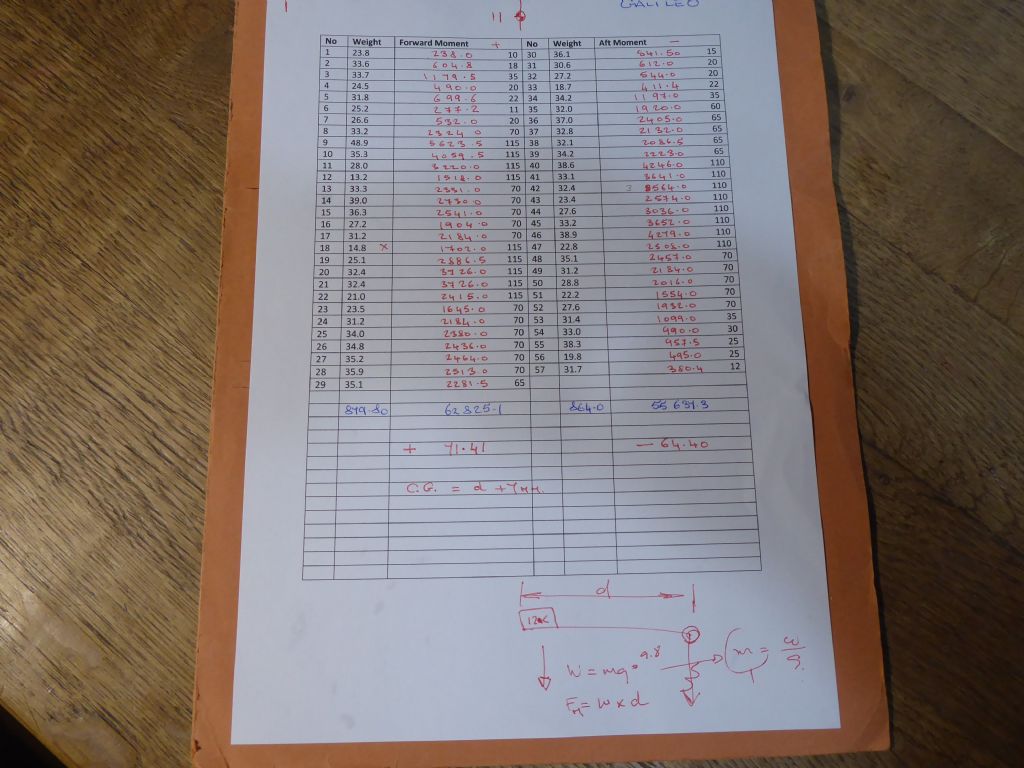 GALILEO
11
No Weight Forward Moment + No Weight Aft Moment -
1 23.8 238.0 10 30 36.1 541.50 15
2 33.6 604.8 18 31 30.6 612.0 20
3 33.7 1179.5 35 32 27.2 544.0 20
4 24.5 490.0 20 33 18.7 411.4 22
5 31.8 699.6 22 34 34.2 1197.0 35
6 25.2 277.2 11 35 32.0 1920.0 60
7 26.6 532.0 20 36 37.0 2405.0 65
8 33.2 2324.0 70 37 32.8 2132.0 65
9 48.9 5623.5 115 38 32.1 2086.5 65
10 35.3 4059.5 115 39 34.2 2223.0 65
11 28.0 3220.0 115 40 38.6 4246.0 110
12 13.2 1518.0 115 41 33.1 3641.0 110
13 33.3 2331.0 70 42 32.4 3 8564.0 110
14 39.0 2730.0 70 43 23.4 2574.0 110
15 36.3 2541.0 70 44 27.6 3036.0 110
16 27.2 1904.0 70 45 33.2 3652.0 110
17 31.2 2184.0 70 46 38.9 4279.0 110
18 14.8 x 1702.0 115 47 22.8 2508.0 110
19 25.1 2886.5 115 48 35.1 2457.0 70
20 32.4 3726.0 115 49 31.2 2184.0 70
21 32.4 3726.0 115 50 28.8 2016.0 70
22 21.0 2415.0 115 51 22.2 1554.0 70
23 23.5 1645.0 70 52 27.6 1932.0 70
24 31.2 2184.0 70 53 31.4 1099.0 35
25 34.0 2380.0 70 54 33.0 990.0 30
26 34.8 2436.0 70 55 38.3 957.5 25
27 35.2 2464.0 70 56 19.8 495.0 25
28 35.9 2513.0 70 57 31.7 380.4 12
29 35.1 2281.5 65
879.80 62825.1 864.0 55637.3
+ 71.41 - 64.40
C.G. = d + 7mm.
d
W = mg 9.8 m = w/g
= w x d